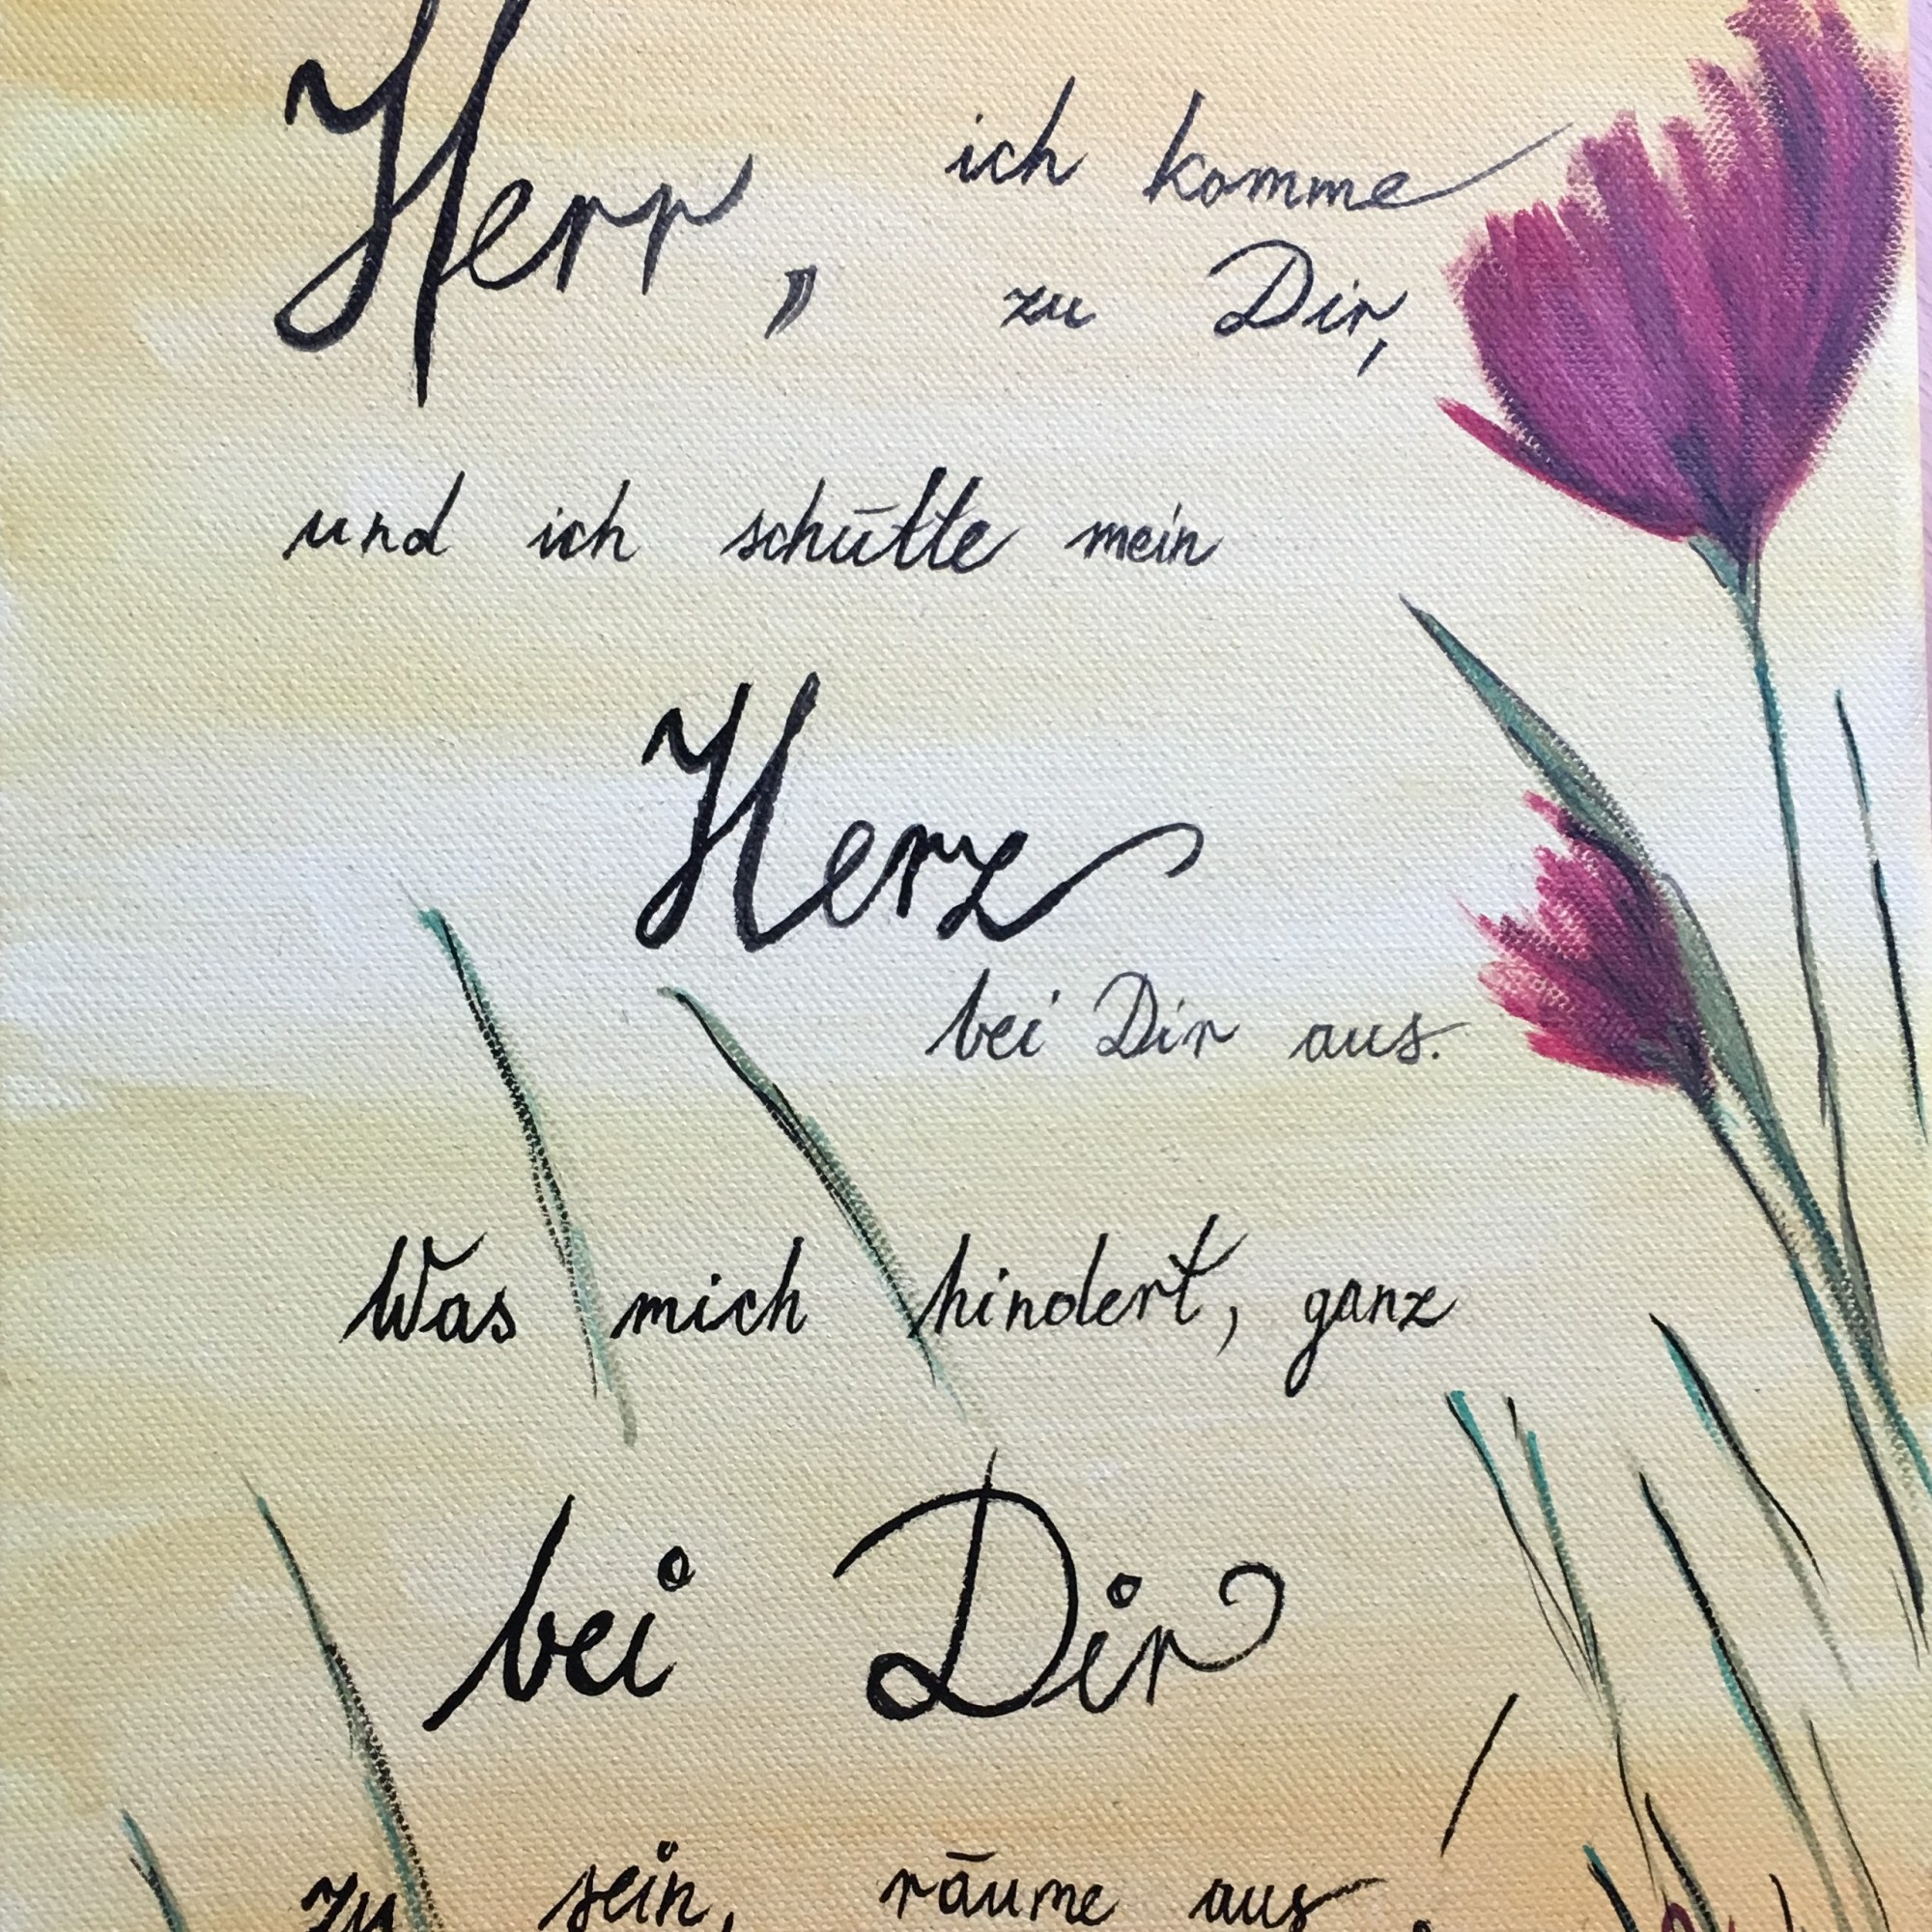 Herr, ich komme
zu Dir,
und ich schütte mein
Herz
bei Dir aus.
Was mich hindert, ganz
bei Dir
zu sein, räume aus